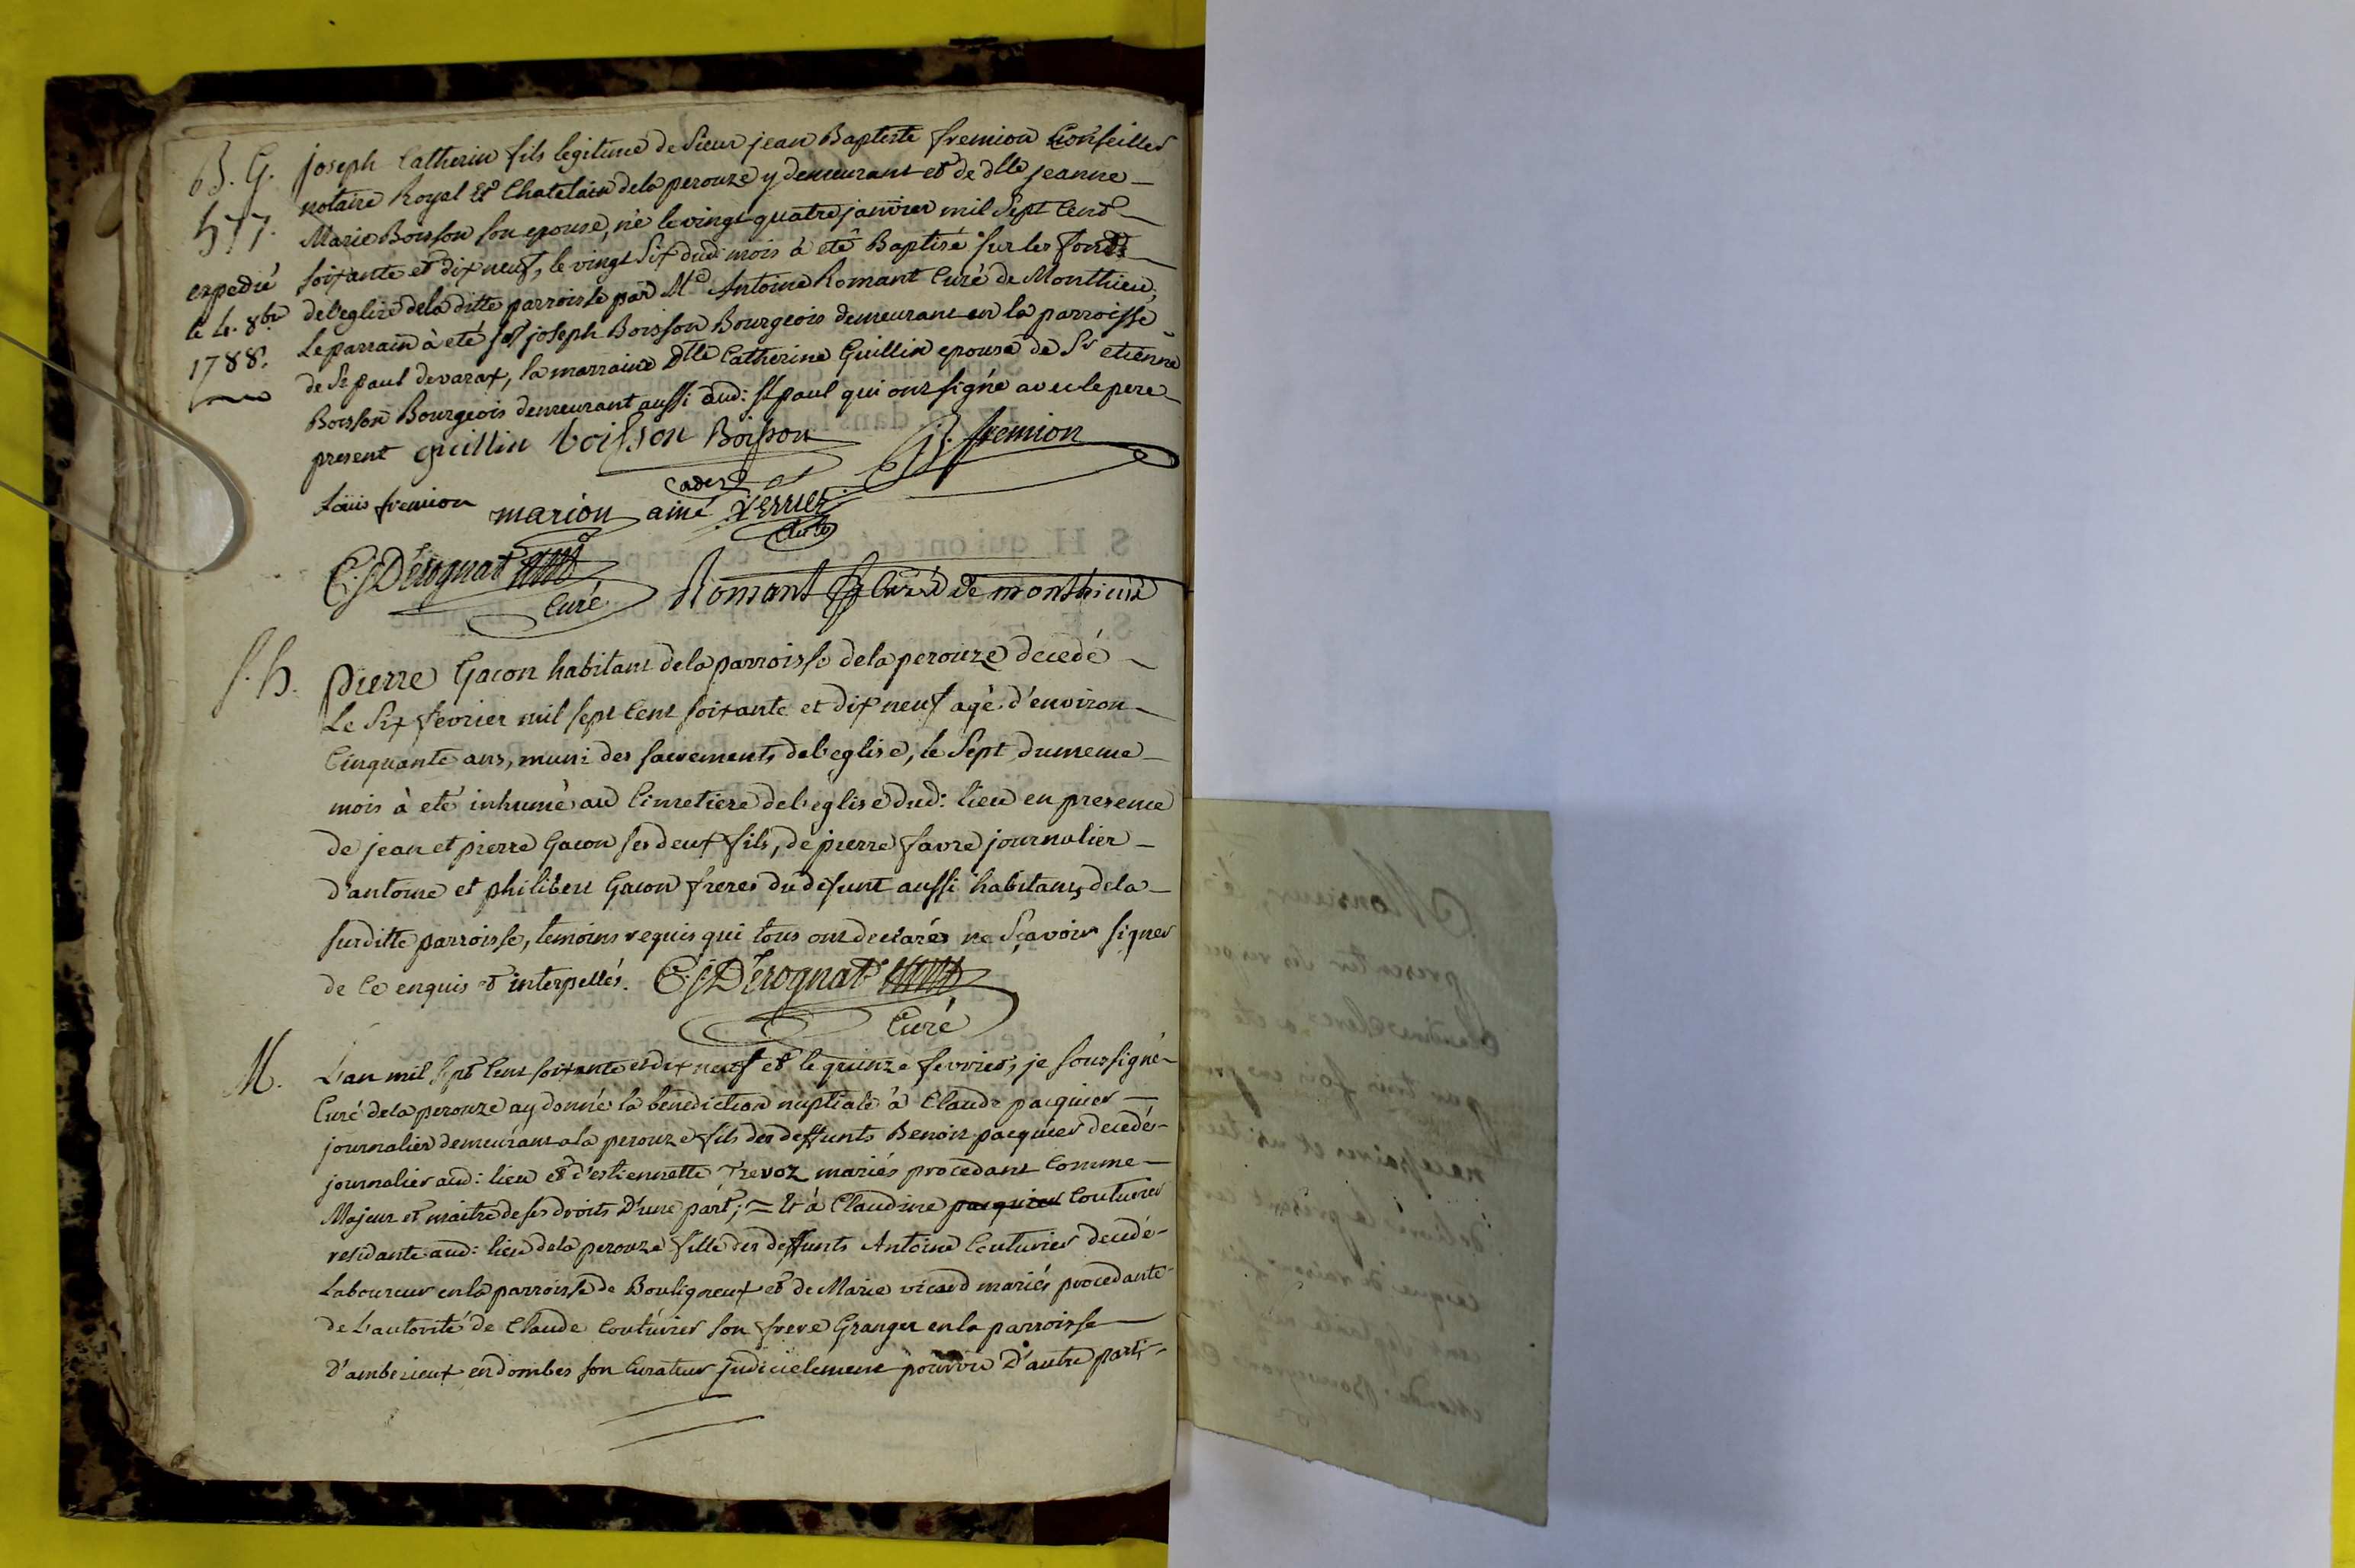 B. G. joseph Catherin fils legitime de Sieur jean Baptiste fremion Conseiller
notaire Royal Et Chatelain dela perouze y demeurant et de dlle jeanne
577. Marie Boisson son epouse, né le vingt quatre janvier mil Sept Cent
expedié soixante et dix neuf, le vingt Six dud: mois à eté Baptisé sur les fonds
le 4. 8bre del'eglize dela ditte parroisse par Me Antoine Romant Curé de Monthieu,
1788. Le parrain à eté sr joseph Boisson Bourgeois demeurant en la parroisse
de St paul devarax, la marraine Dlle Catherine Guillin epouse de Sr etienne
Boisson Bourgeois demeurant aussi aud: St paul qui ont signé avec le pere
present guillin boisson Boisson J. fremion
cadet
Loüis fremion marion ainé verrier
C. J Derognat
Curé Romant Curé de monthieux
S. h. pierre Gacon habitant dela parroisse dela perouze decedé
Le Six fevrier mil sept Cent soixante et dix neuf agé d'environ
Cinquante ans, muni des sacrements del'eglise, le Sept du meme
mois à eté inhumé au Cimetiere del'eglise dud: lieu en presence
de jean et pierre Gacon ses deux fils, de pierre favre journalier
d'antoine et philibert Gacon freres du defunt aussi habitants dela
surditte parroisse, temoins requis qui tous ont declarés ne Sçavoir signer
de Ce enquis et interpellés. C. J Derognat
Curé
M. L'an mil Sept Cent soixante et dix neuf et le quinze fevrier, je soussigné
Curé dela perouze ay donné la benediction nuptiale à Claude pacquier
journalier demeurant a la perouze fils des deffunts Benoit pacquier decedé
journalier aud: lieu et d'estiennette Trevoz mariés procedant Comme
Majeur et maitre de ses droits D'une part; = Et à Claudine pacquier Couturier
residante aud: lieu dela perouze fille des deffunts Antoine Couturier decedé
Laboureur enla parroisse de Bouligneux et de Marie vicard mariés procedante
de L'autorité de Claude Couturier son frere Granger enla parroisse
D'amberieux en dombes son Curateur judicielement pourvu D'autre part;